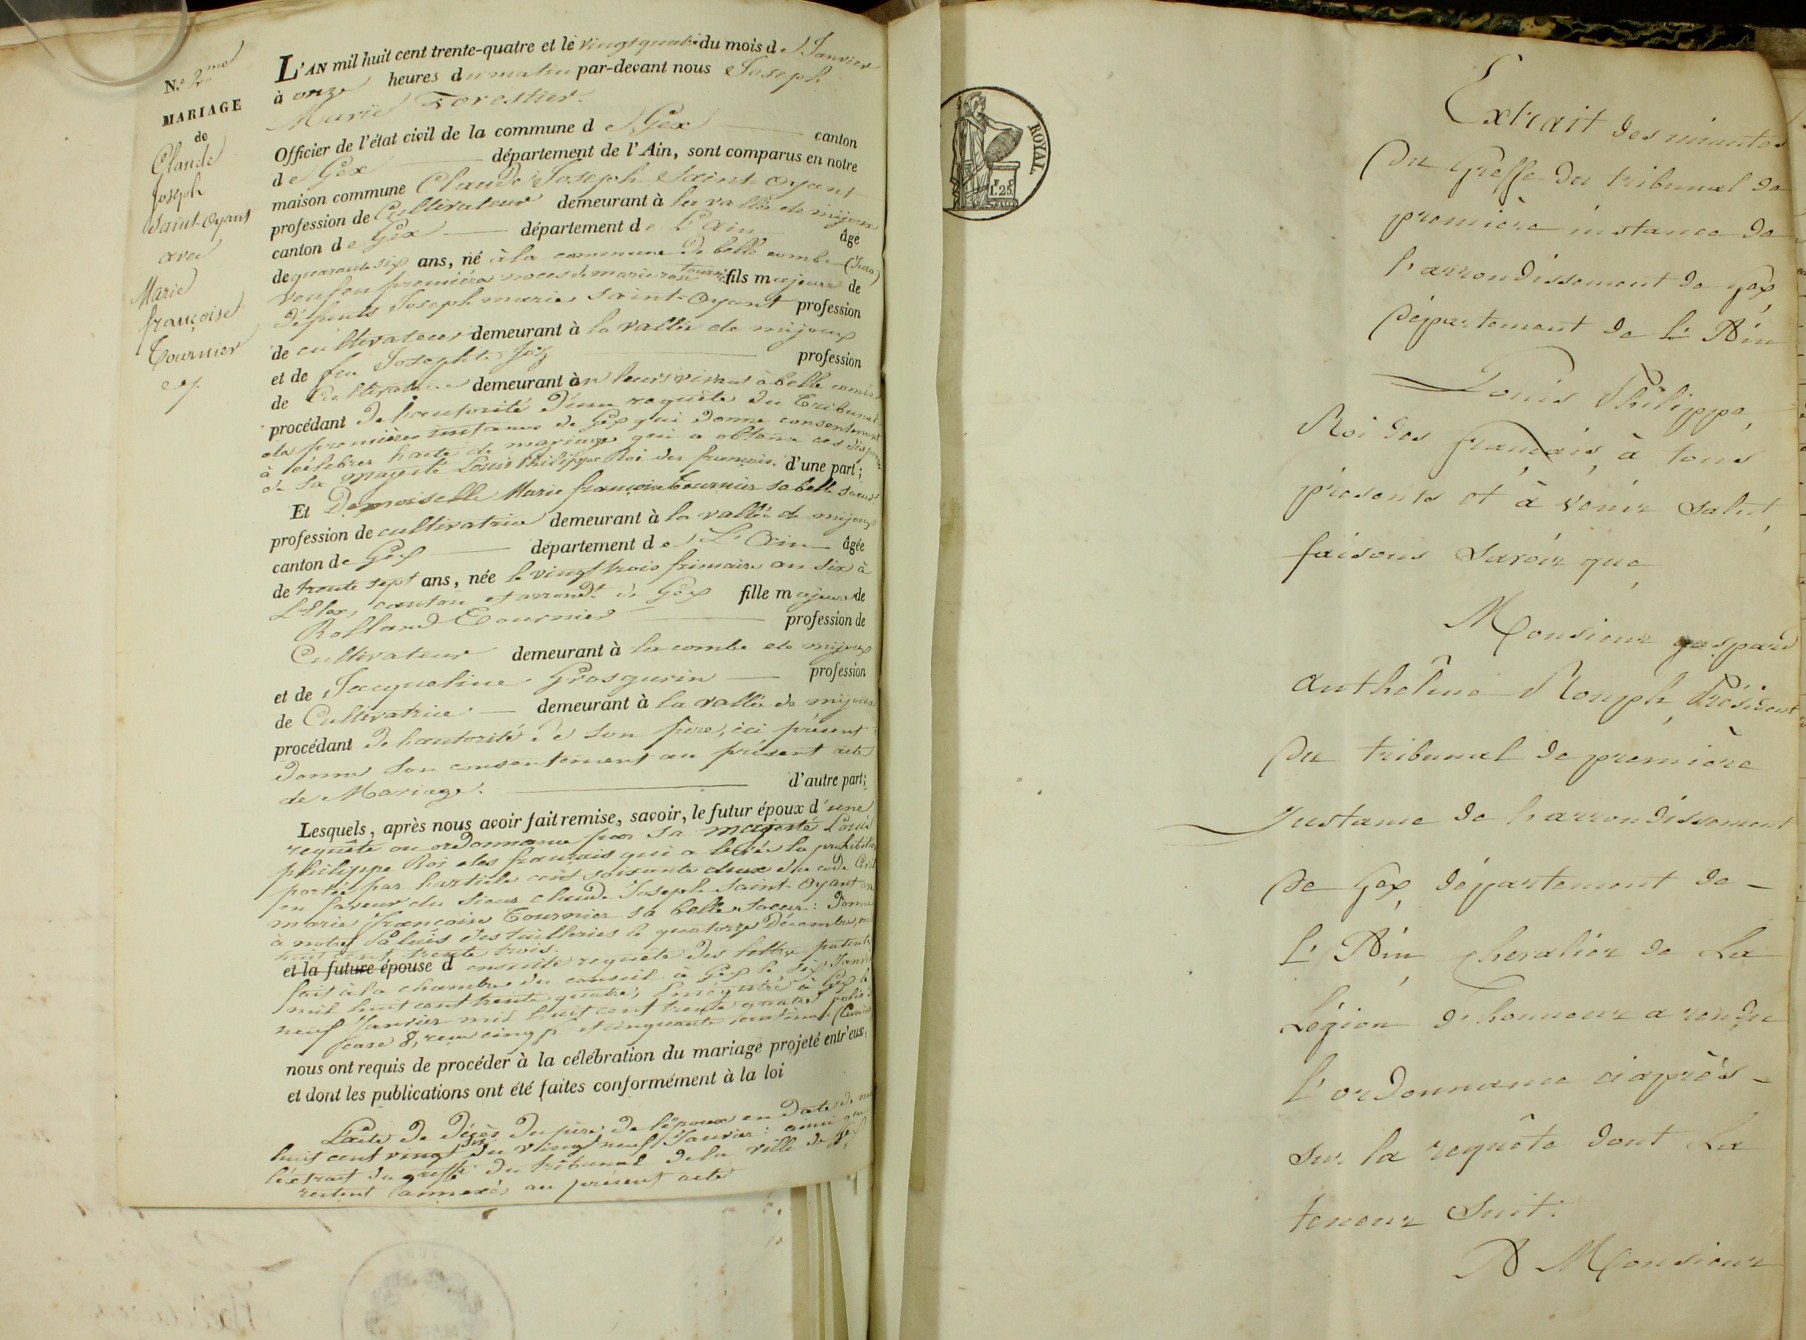 N.º 2me
MARIAGE
de
Claude
Joseph
Saint-Oyant
avec
Marie
françoise
Tournier
L'AN mil huit cent trente-quatre et le vingt quatre du mois de Janvier
à onze heures du matin par-devant nous Joseph
Marie Forestier.
Officier de l'état civil de la commune de Gex canton
de Gex département de l'Ain, sont comparus en notre
maison commune Claude Joseph Saint-Oyant
profession de Cultivateur demeurant à la vallée de mijoux
canton de Gex département de L'Ain âge
de quarante six ans, né à la commune de belle combe (Jura)
veuf en premières noces de marie rose tournier fils majeur de
défunts Joseph marie Saint-Oyant profession
de cultivateur demeurant à la vallée de mijoux
et de feu Josephte profession
de Cultivatrice demeurant en leurs vivant à belle combe
procédant de l'autorité d'une requête du Tribunal
de première instance de Gex qui donne consentement
à célébrer l'acte de mariage qui a obtenu ces dispenses
de sa majesté Louis Philippe Roi des français. d'une part;
Et Demoiselle Marie françoise Tournier sa belle soeur
profession de cultivatrice demeurant à la vallée de mijoux
canton de Gex département de L'Ain âgée
de trente sept ans, née le vingt trois frimaire an six à
Lelex, canton et arrondt de Gex fille majeure de
Rolland Tournier profession de
Cultivateur demeurant à la combe de mijoux
et de Jacqueline Grosgurin profession
de Cultivatrice demeurant à la vallée de mijoux
procédant de l'autorité de son père, ici présent
donne son consentement au présent acte
de Mariage. d'autre part;
Lesquels, après nous avoir fait remise, savoir, le futur époux d'une
requête ou ordonnance par sa majesté Louis
philippe Roi des français qui a levée la prohibition
portée par l'article cent soixante deux du code Civil
en faveur du sieur claude Joseph Saint-Oyant
marie françoise Tournier sa belle soeur: donné
a notre Palais des tuilleries le quatorze Décembre, mil
huit cent trente trois.
et la future épouse d ensuite requête des lettre patente
fait à la chambre du conseil à Gex le six Janvier
mil huit cent trente quatre, Enregistré à Gex le
neuf Janvier mil huit cent trente quatre folio
case 8, reçu cinq f et cinquante centimes
nous ont requis de procéder à la célébration du mariage projeté entr'eux,
et dont les publications ont été faites conformément à la loi
L'acte de décès du père de l'époux en date de mil
huit cent vingt six du vingt neuf Janvier: ainsi que
l'extrait du greffe du tribunal de la ville de Gex
restent annexés au présent acte
ROYAL
F. C.
1. 25.
Extrait des minutes
du Greffe du tribunal de
première instance de
l'arrondissement de Gex
département de l'Ain
Louis Philippe,
Roi des français, à tous
présents et à venir salut,
faisons savoir que
Monsieur gaspard
anthelme Rouph, Président
du tribunal de première
Instance de l'arrondissement
de Gex, département de
l'Ain Chevalier de La
Légion d'honneur a rendu
l'ordonnance ciaprès
sur la requête dont La
teneur Suit.
A Monsieur